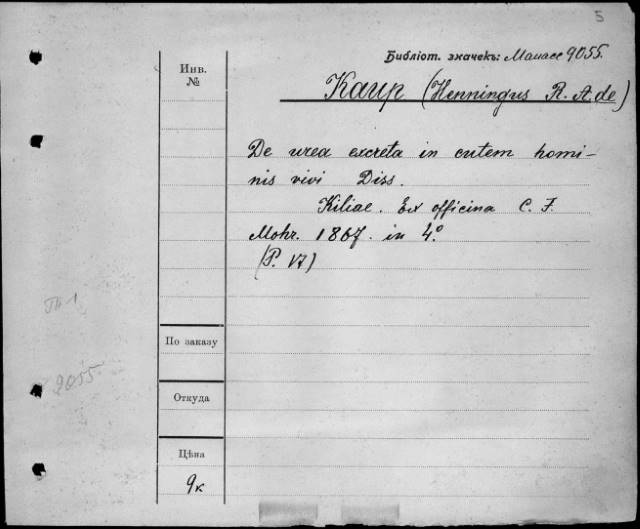 5
Библіот. значекъ: Манасс 9055.
Инв.
№
Kaup (Henningus R. A. de)
De urea excreta in cutem homi-
nis vivi Diss.
Kiliae. Ex officina C. F.
Mohr. 1867. in 4.°
(P. 17)
9055.
По заказу
Откуда
Цѣна
9к